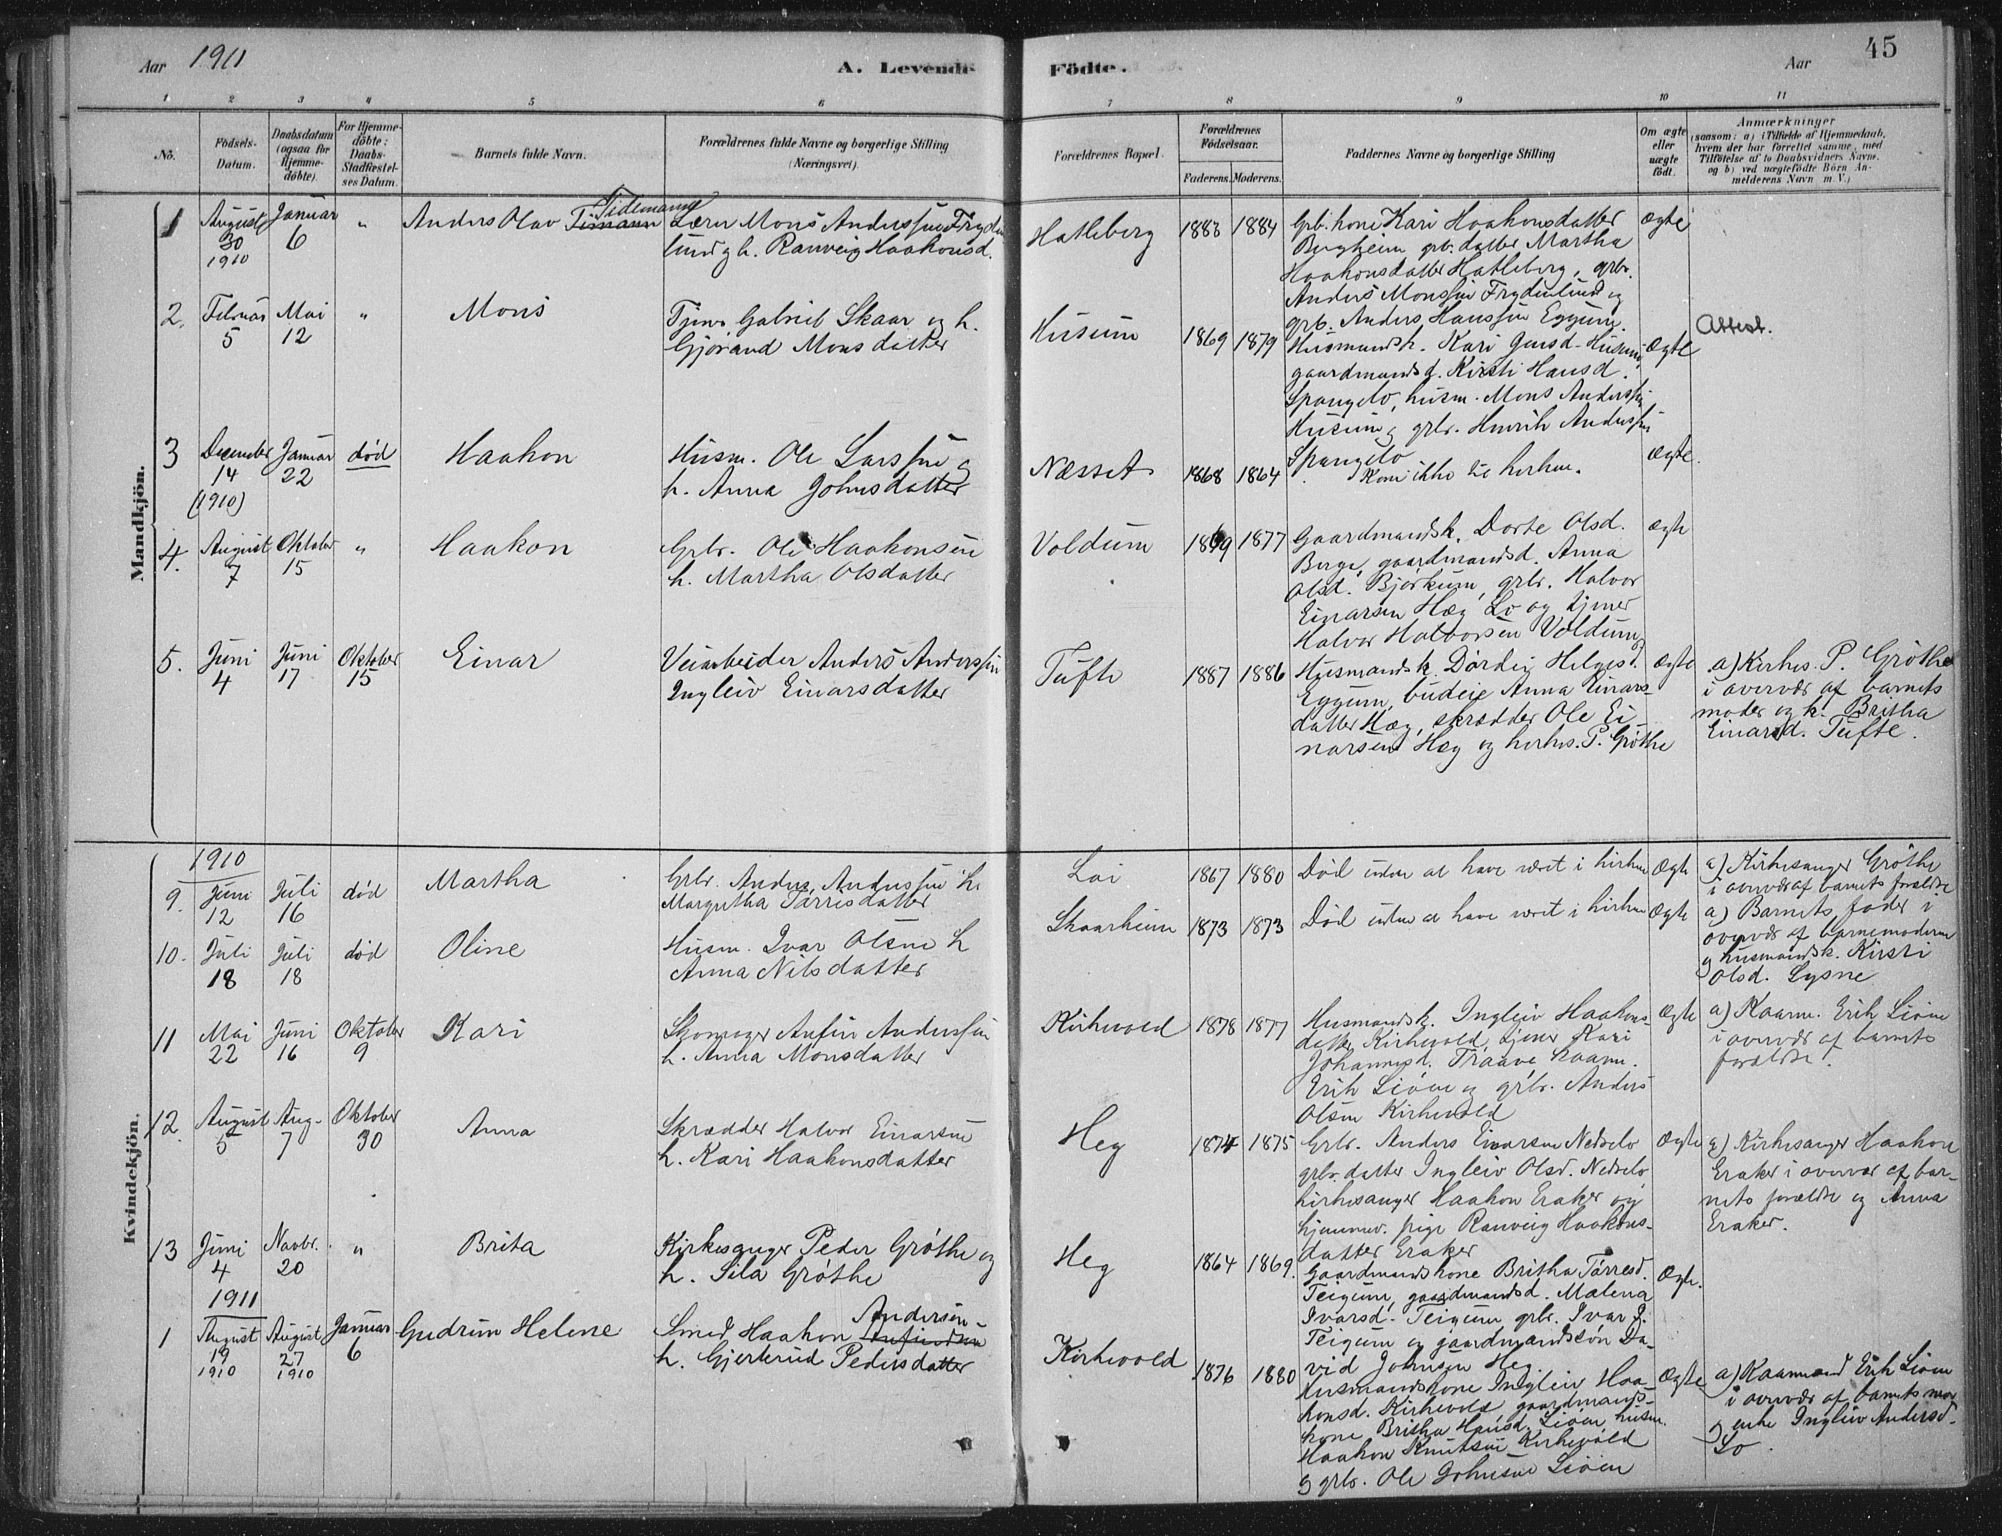 Aar 1911
A. Levende Födte.
Aar 45
1 2 3 4 5 6 7 8 9 10 11
No.
Födsels-Datum.
Daabsdatum (ogsaa for Hjemme-döbte).
For Hjemme-döbte: Daabs-Stadfæstel-ses Datum.
Barnets fulde Navn.
Forældrenes fulde Navne og borgerlige Stilling (Næringsvei).
Forældrenes Bopæl.
Forældrenes Födselsaar.
Faderens. Moderens.
Faddernes Navne og borgerlige Stilling
Om ægte eller uægte födt.
Anmærkninger
(saasom: a) i Tilfælde af Hjemmedaab, hvem der har forrettet samme, med Tilföielse af to Daabsvidners Navne, og b) ved uægtefödte Börn Anmelderens Navn m. V.)
Mandkjön.
1 August 30 1910
Januar 6
"
Anders Olav Timann Tidemann
Lærer Mons Anderssen Fryden
lund g h. Ranveig Haakonsd.
Hatleberg
1888 1884
Grb. kone Kari Haakonsdatter
Bergheim grb. datter Martha
Haakonsdatter Hatleberg, grbr.
Anders Monssen Frydenlund og
grb. Anders Hanssen Eggum.
Ægte
2. Februar 5
Mai 12
"
Mons
Tjener Gabriel Skaar og h.
Gjørand Monsdatter
Husum
1869 1879
Husmandsk. Kari Gunsd. Husum,
gaardmandsd. Kirsti Hansd.
Spangelo, husm. Mons Anderssen
Husum og grbr. Henrik Anderssen
Spangelo
Ægte
Attest.
3 December 14 (1910)
Januar 22
død
Haakon
Husm. Ole Larssen og
h. Anna Johnsdatter
Næsset
1868 1864
Kom ikke til kirken.
Ægte.
4. August 7
Oktober 15
"
Haakon
Grbr. Ole Haakonsen
h. Martha Olsdatter
Voldum
1869 1877
Gaardmandsk. Dorte Olsd.
Berge, gaardmandsd. Anna
Olsd. Bjørkum, grbr. Halvor
Einarsen Hæg Lo og tjener
Halvor Halvorsen Voldum
ægte
5. Juni 4
Juni 17
Oktober 15
Einar
Veiarbeider Anders Anderssen
Ingleiv Einarsdatter
Tufte
1887 1886
Husmandsk. Dordei Helgesd.
Eggum, budeie Anna Einars-
datter Hæg, skrædder Ole Ei
narsen Hæg og kirkes. P. Grøthe
Ægte
a) Kirkes. P. Grøthe
i overvær af barnets
moder og k. Britha
Einarsd. Tufte.
Kvindekjön.
1910
9. Juni 12
Juli 16
død
Martha
Grbr. Anders Anderssen h.
Margretha Tørrisdatter
Loi
1867 1880
Død uden at have været i kirken
Ægte
a) Kirkesanger Grøthe
i overvær af barnets forældre
10. Juli 18
Juli 18
død
Oline
Husm. Ivar Olsen h
Anna Nilsdatter
Skaarheim
1873 1873
Død uden at have været i kirken
Ægte
a) Barnets fader i
overvær af barnemoderen
g husmandsk. Kirsti
Olsd. Lysne
11 Mai 22
Juni 16
Oktober 9
Kari
Skomager Anfin Anderssen
h. Anna Monsdatter
Kirkevold
1878 1877
Husmandsk. Ingleiv Haakons-
datter Kirkevold, tjener Kari
Johannesd. Traave, kaarm.
Erik Liøen og grbr. Anders
Olsen Kirkevold
Ægte
a) Kaarm. Erik Liøen
i overvær af barnets
forældre.
12. August 5
Aug. 7
Oktober 30
Anna
Skrædder Halvor Einarsen
h. Kari Haakonsdatter
Heg
1874 1875
Grbr. Anders Einarsen Nedrelo
grbr. datter Ingleiv Olsd. Nedrelo
kirkesanger Haakon Eraker og
hjemmev. pige Ranveig Haakons-
datter Eraker
Ægte
a) Kirkesanger Haakon
Eraker i overvær af bar-
nets forældre og Anna
Eraker.
13 Juni 4
Novbr. 20
"
Brita
Kirkesanger Peder Grøthe og
h. Sila Grøthe
Heg
1864 1869.
Gaardmandskone Britha Tørresd.
Teigum, gaardmandsd. Malena
Ivarsd. Teigum, grbr. Ivar J.
Teigum og gaardmandssøn Da-
vid Johnsen Heg.
Ægte.
1911
1 August 19 1910
August 27 1910
Januar 6
Gudrun Helene
Smed Haakon Anfindsen Andersen
h. Gjertrud Pedersdatter
Kirkevold
1876 1880
Husmandskone Ingleiv Haa-
konsd. Kirkevold gaardmands-
kone Britha Hansd. Liøen, husm.
Haakon Knutsen Kirkevold
g grbr. Ole Johnsen Liøen
Ægte
a) Kaarmand Erik Liøen
i overvær af barnets mor
g enke Ingleiv Andersd.
Lo.